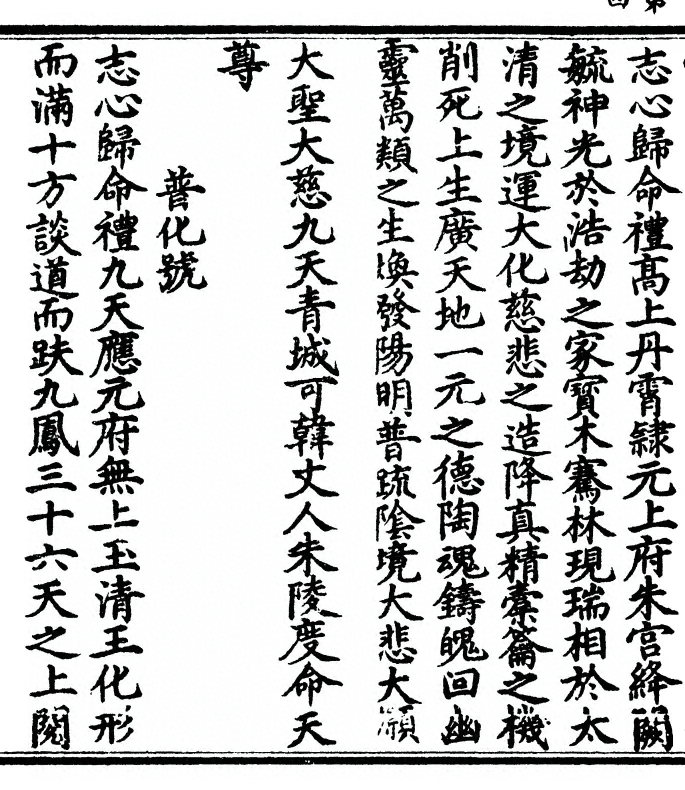 志心歸命禮高上丹霄隷元上府朱宮絳闕
毓神光於浩劫之家寳木騫林現瑞相於太
清之境運大化慈悲之造降真精橐籥之機
削死上生廣天地一元之德陶魂鑄魄回幽
靈萬類之生煥發陽明普疏陰境大悲大願
大聖大慈九天青城可韓丈人朱陵度命天
尊
普化號
志心歸命禮九天應元府無上玉清王化形
而滿十方談道而趺九鳳三十六天之上閱